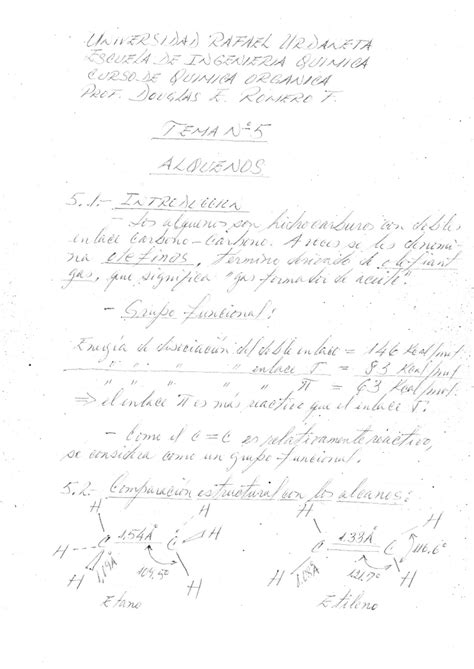 UNIVERSIDAD RAFAEL URDANETA
ESCUELA DE INGENIERIA QUIMICA
CURSO DE QUIMICA ORGANICA
PROF. DOUGLAS E. ROMERO T.
TEMA Nº 5
ALQUENOS
5.1.- INTRODUCCION
- Los alquenos son hidrocarburos con doble
enlace carbono-carbono. A veces se les denomi
na olefinas, término derivado de olefiant
gas, que significa "gas formador de aceite".
- Grupo funcional:
Energía de disociación del doble enlace = 146 Kcal/mol.
" " " " enlace σ = 83 Kcal/mol
" " " " π = 63 Kcal/mol.
⇒ el enlace π es más reactivo que el enlace σ.
- Como el C=C es relativamente reactivo,
se considera como un grupo funcional.
5.2. Comparación estructural con los alcanos:
H H H H
1.54Å 1.33Å
H C C H C C 116.6°
H 1.09Å 109.5° H H 1.08Å 121.7° H
Etano Etileno